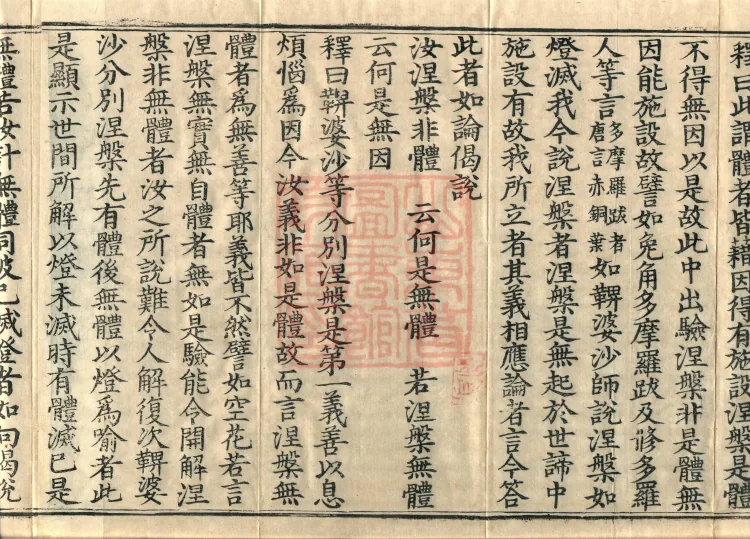 釋曰此謂體者皆藉因得有施設涅槃
不得無因以是故此中出驗涅槃非是體無
因能施設故譬如兔角多摩羅跋及修多羅
人等言多摩羅跋者唐言赤銅葉如鞞婆沙師說涅槃如
燈滅我今說涅槃者涅槃是無起於世諦中
施設有故我所立者其義相應論者言今答
此者如論偈說
汝涅槃非體　云何是無體　若涅槃無體
云何是無因
釋曰鞞婆沙等分別涅槃是第一義善以息
煩惱爲因今汝義非如是體故而言涅槃無
體者爲無善等耶義皆不然譬如空花若言
涅槃無實無自體者無如是驗能令開解涅
槃非無體者汝之所說難令人解復次鞞婆
沙分別涅槃先有體後無體以燈爲喻者此
是顯示世間所解以燈未滅時有體滅已是
無體若汝計無體同彼已滅燈者如向偈說